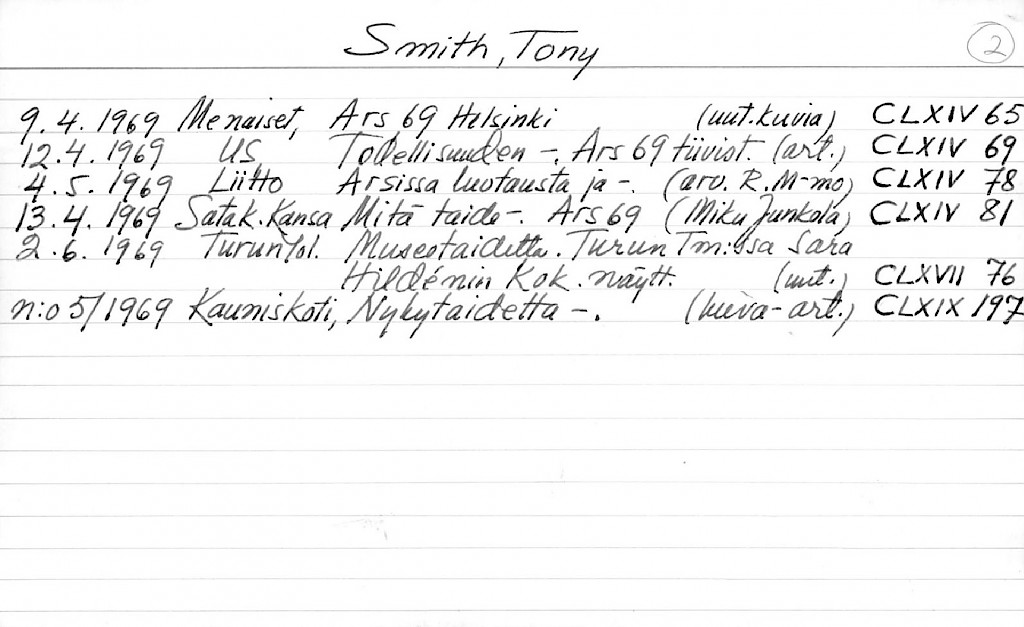 Smith, Tony
2
9.4.1969 Menaiset, Ars 69 Helsinki (uut.kuvia) CLXIV 65
12.4.1969 US, Todellisuuden -. Ars 69 tiivist. (art.) CLXIV 69
4.5.1969 Liitto Arsissa luotausta ja -. (arv. R.M-mo) CLXIV 78
13.4.1969 Satak.Kansa Mitä taide -. Ars 69 (Miku Junkola) CLXIV 81
2.6.1969 Turun Museotaidetta. Turun Tm:ssa Sara
Hildénin Kok. näytt. (uut.) CLXVII 76
n:o 5/1969 Kauniskoti, Nykytaidetta -. (kuva-art.) CLXIX 197